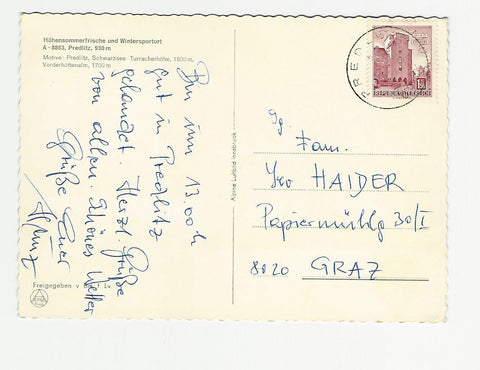 Höhensommerfrische und Wintersportort
A - 8863, Predlitz, 930 m
Motive: Predlitz, Schwarzsee - Turracherhöhe, 1800 m,
Vorderhüttenalm, 1700 m
Bin um 13.00 h
gut in Predlitz
gelandet. Herzl. Grüße
von allen. Schönes Wetter
Grüße Euer
Freigegeben v
Alpine Luftbild Innsbruck
PRED
REPUBLIK ÖSTERREICH
Fam.
HAIDER
Papiermühlg 30/I
8020 GRAZ